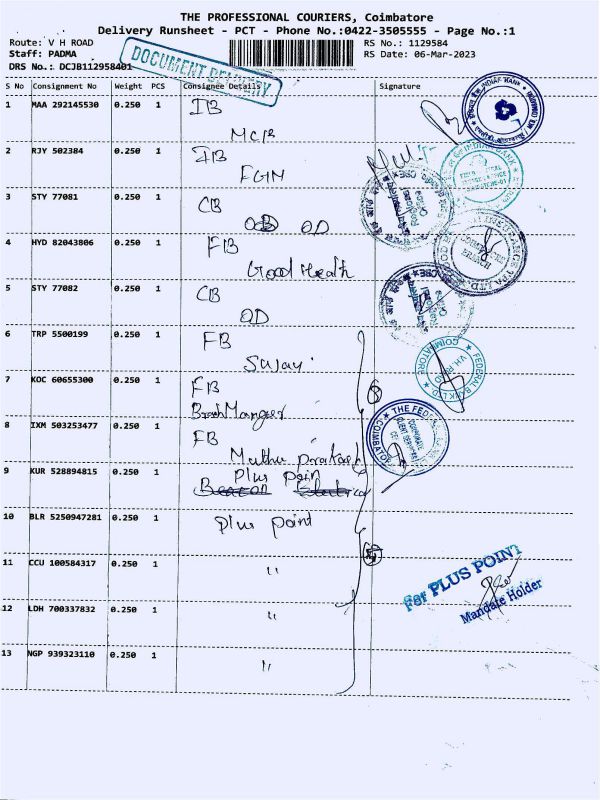 THE PROFESSIONAL COURIERS, Coimbatore
Delivery Runsheet - PCT - Phone No.:0422-3505555 - Page No.:1
Route: V H ROAD
RS No.: 1129584
Staff: PADMA
RS Date: 06-Mar-2023
DRS No.: DCJB112958401
DOCUMENT DELIVERY
S No Consignment No Weight PCS Consignee Details Signature
1 MAA 292145530 0.250 1 IB
MCIB
2 RJY 502384 0.250 1 IB
FGM
3 STY 77081 0.250 1 CB
OD
4 HYD 82043806 0.250 1 FB
Good Health
5 STY 77082 0.250 1 CB
OD
6 TRP 5500199 0.250 1 FB
Sujay
7 KOC 60655300 0.250 1 FB
Branch Manger
8 IXM 503253477 0.250 1 FB
Muthu prakash
9 KUR 528894815 0.250 1 Plus poin
10 BLR 5250947281 0.250 1 Plus point
11 CCU 100584317 0.250 1 "
12 LDH 700337832 0.250 1 "
13 NGP 939323110 0.250 1 "
INDIAN BANK
INDIAN BANK
FEDERAL BANK LTD
V.H. ROAD
COIMBATORE
THE FEDE
COIMBATOR
For PLUS POINT
Mandate Holder